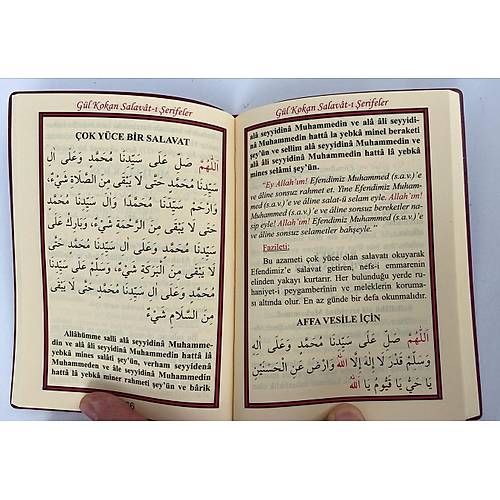 Gül Kokan Salavât-ı Şerifeler
ÇOK YÜCE BİR SALAVAT
اَللّٰهُمَّ صَلِّ عَلَى سَيِّدِنَا مُحَمَّدٍ وَعَلَى اٰلِ
سَيِّدِنَا مُحَمَّدٍ حَتّٰى لَا يَبْقَى مِنَ الصَّلَاةِ شَيْءٌ،
وَارْحَمْ سَيِّدَنَا مُحَمَّدًا وَاٰلَ سَيِّدِنَا مُحَمَّدٍ حَتّٰى
لَا يَبْقَى مِنَ الرَّحْمَةِ شَيْءٌ، وَبَارِكْ عَلَى
سَيِّدِنَا مُحَمَّدٍ وَعَلَى اٰلِ سَيِّدِنَا مُحَمَّدٍ حَتّٰى
لَا يَبْقَى مِنَ الْبَرَكَةِ شَيْءٌ، وَسَلِّمْ عَلَى سَيِّدِنَا
مُحَمَّدٍ وَعَلَى اٰلِ سَيِّدِنَا مُحَمَّدٍ حَتّٰى لَا يَبْقَى
مِنَ السَّلَامِ شَيْءٌ
Allâhümme salli alâ seyyidinâ Muhamme-
din ve alâ âli seyyidinâ Muhammedin hattâ lâ
yebkâ mines salâti şey'ün, verham seyyidenâ
Muhammeden ve âle seyyidinâ Muhammedin
hattâ lâ yebkâ miner rahmeti şey'ün ve bârik
Gül Kokan Salavât-ı Şerifeler
alâ seyyidinâ Muhammedin ve alâ âli seyyidi-
nâ Muhammedin hattâ la yebkâ minel bereketi
şey'ün ve sellim alâ seyyidinâ Muhammedin ve
alâ âli seyyidinâ Muhammedin hattâ lâ yebkâ
mines selâmi şey'ün.
"Ey Allah'ım! Efendimiz Muhammed (s.a.v.)'e
ve âline sonsuz rahmet et. Yine Efendimiz Muham-
med (s.a.v.)'e ve âline salat-ü selam eyle. Allah'ım!
Muhammed (s.a.v.)'e ve âline sonsuz bereketler na-
sip eyle! Allah'ım! Efendimiz Muhammed (s.a.v.)'e
ve âline sonsuz selametler bahşeyle."
Fazileti:
Bu azameti çok yüce olan salavatı okuyarak
Efendimiz'e salavat getiren, nefs-i emmarenin
elinden yakayı kurtarır. Her bulunduğu yerde ru-
haniyet-i peygamberînin ve meleklerin koruma-
sı altında olur. En az günde bir defa okunmalıdır.
AFFA VESİLE İÇİN
اَللّٰهُمَّ صَلِّ عَلَى سَيِّدِنَا مُحَمَّدٍ وَعَلَى اٰلِهِ
وَسَلِّمْ قَدْرَ لَا اِلٰهَ اِلَّا اللّٰهُ وَارْضَ عَنِ الْحَسَنَيْنِ
يَا حَيُّ يَا قَيُّومُ يَا اَللّٰهُ